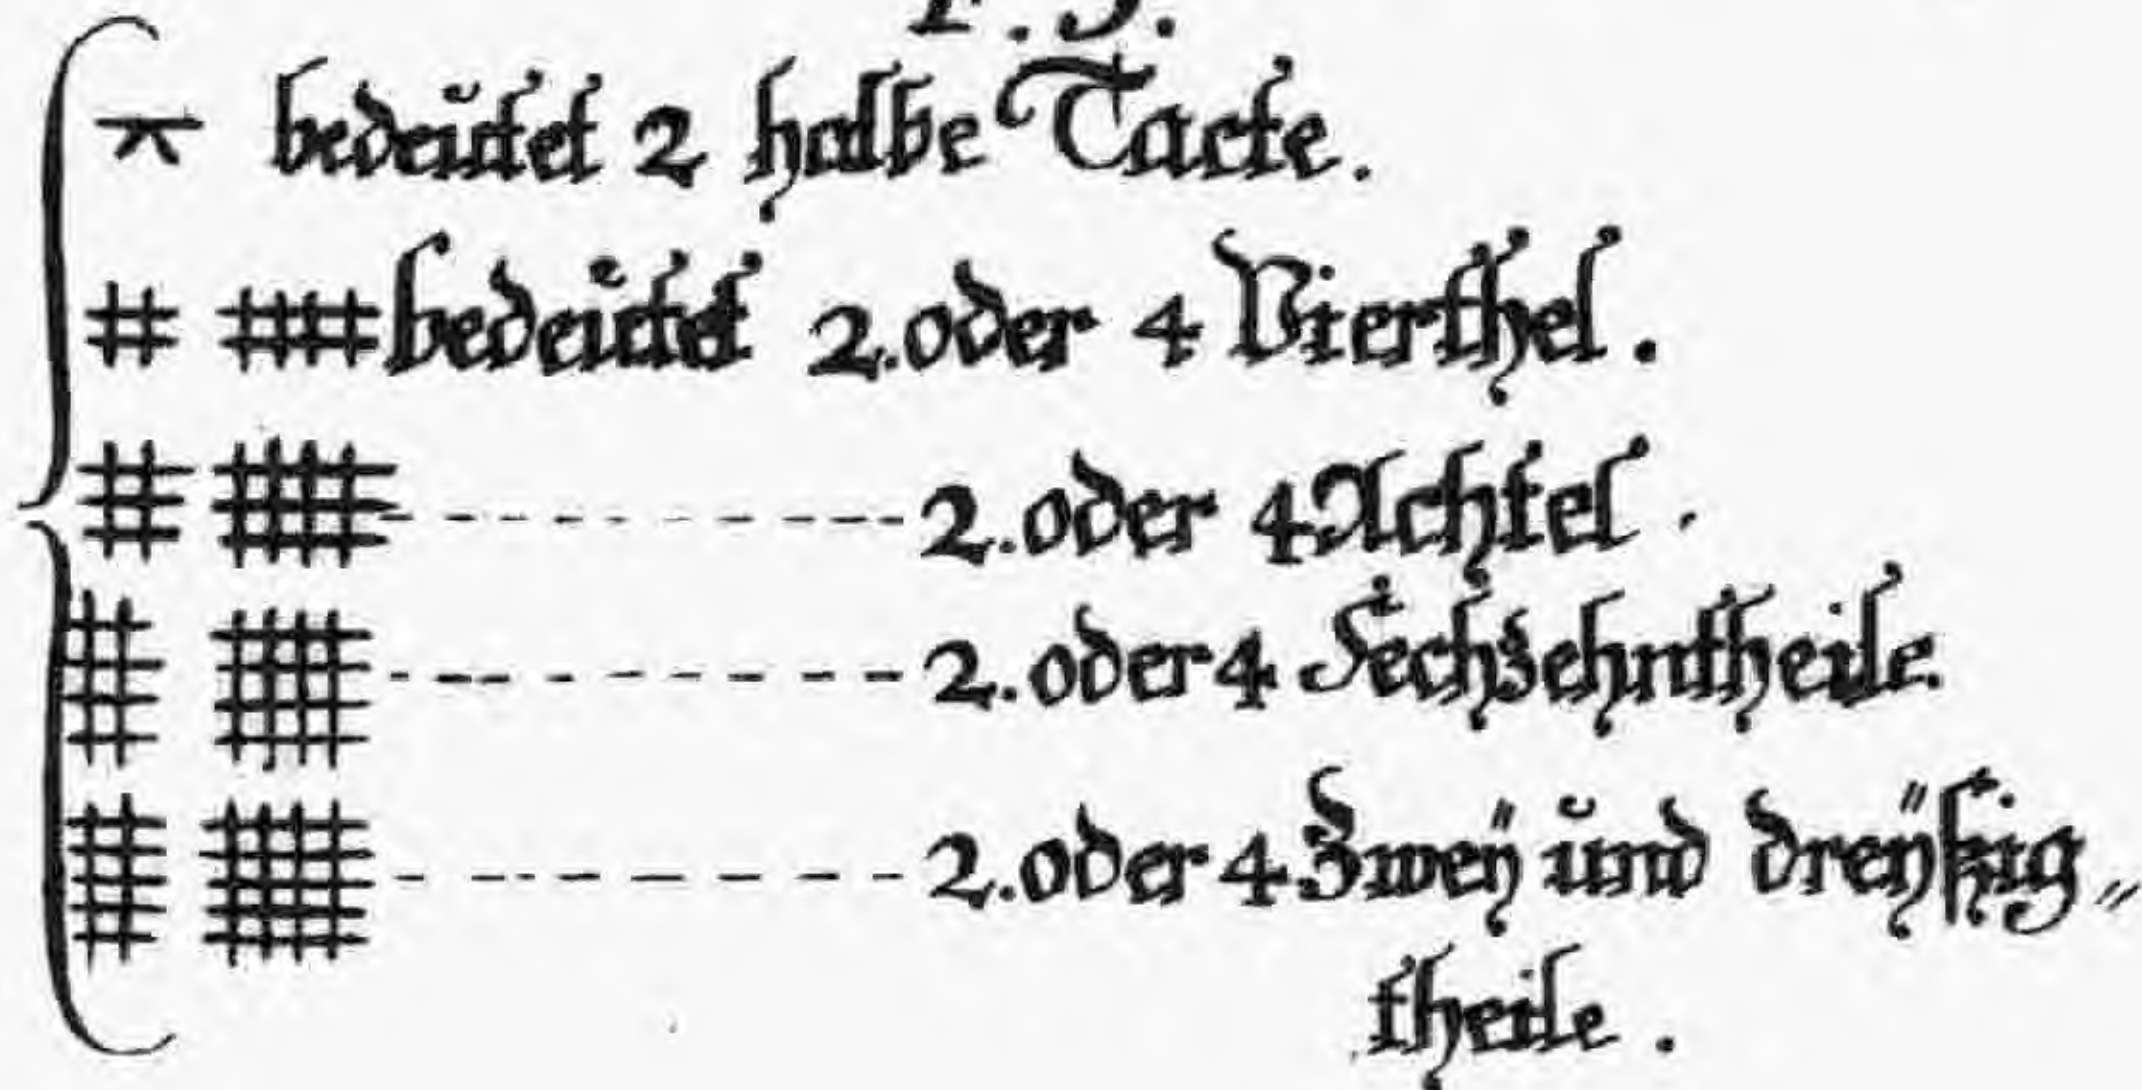 bedeŭtet 2 halbe Tacte.
bedeŭtet 2. oder 4 Vierthel.
2. oder 4 Achtel.
2. oder 4 Sechszehntheile.
2. oder 4 Zweÿ ŭnd dreÿßig„
theile.